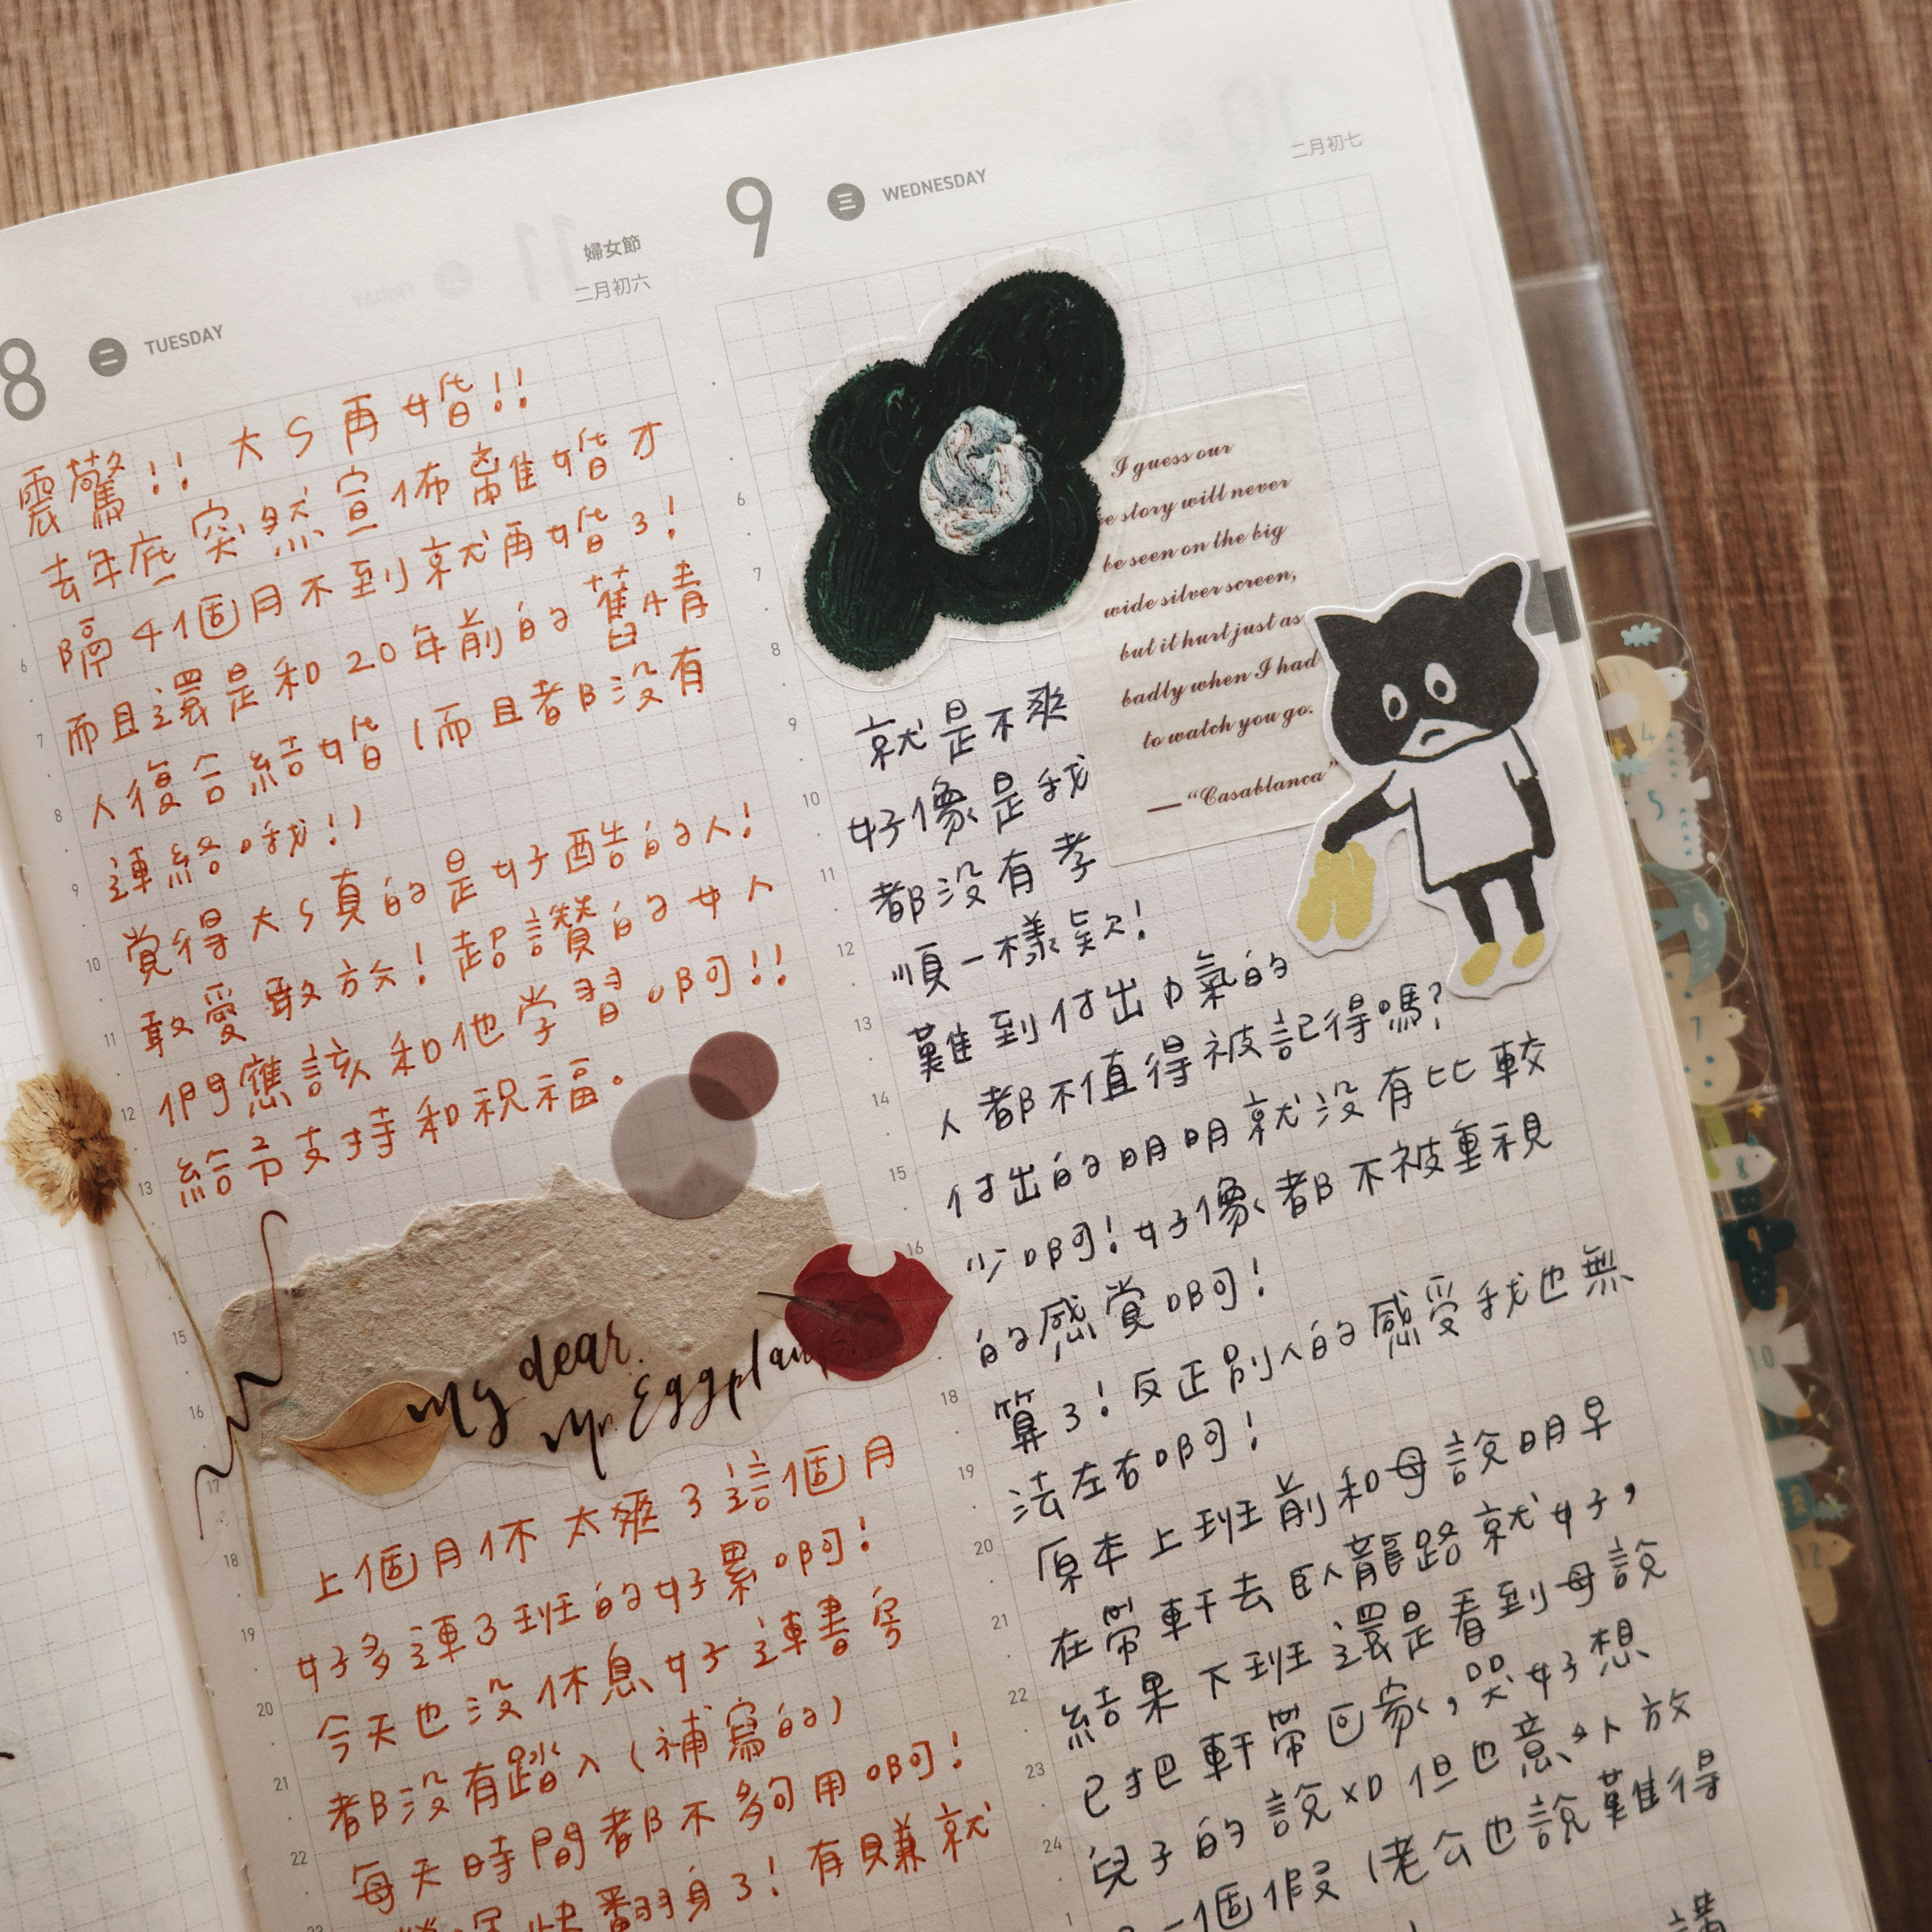 8 二 TUESDAY
婦女節
二月初六
震驚!! 大S再婚!!
去年底突然宣佈離婚才
隔4個月不到就再婚了!
而且還是和20年前的舊情
人復合結婚(而且都沒有
連絡哦!)
覺得大S真的是好酷的人!
敢愛敢放!超讚的女人
們應該和他学習啊!!
給予支持和祝福。
my dear.
Mr. Eggplant
上個月休太爽了這個月
好多連3班的好累啊!
今天也沒休息好連書房
都沒有踏入(補寫的)
每天時間都不夠用啊!
快翻身了!有賺就
9 三 WEDNESDAY
二月初七
I guess our
story will never
be seen on the big
wide silver screen,
but it hurt just as
badly when I had
to watch you go.
— "Casablanca"
就是不爽
好像是我
都沒有孝
順一樣欸!
難到付出力氣的
人都不值得被記得嗎?
付出的明明就沒有比較
少啊!好像都不被重視
的感覺啊!
算了!反正別人的感受我也無
法左右啊!
原本上班前和母說明早
在帶軒去臥龍路就好,
結果下班還是看到母說
已把軒帶回家,哭好想
兒子的說XD但也意外放
一個假(老公也說難得
講
6
7
8
9
10
11
12
13
15
16
17
18
19
20
21
22
6
7
8
9
10
11
12
13
14
15
16
18
19
20
21
22
23
24
1